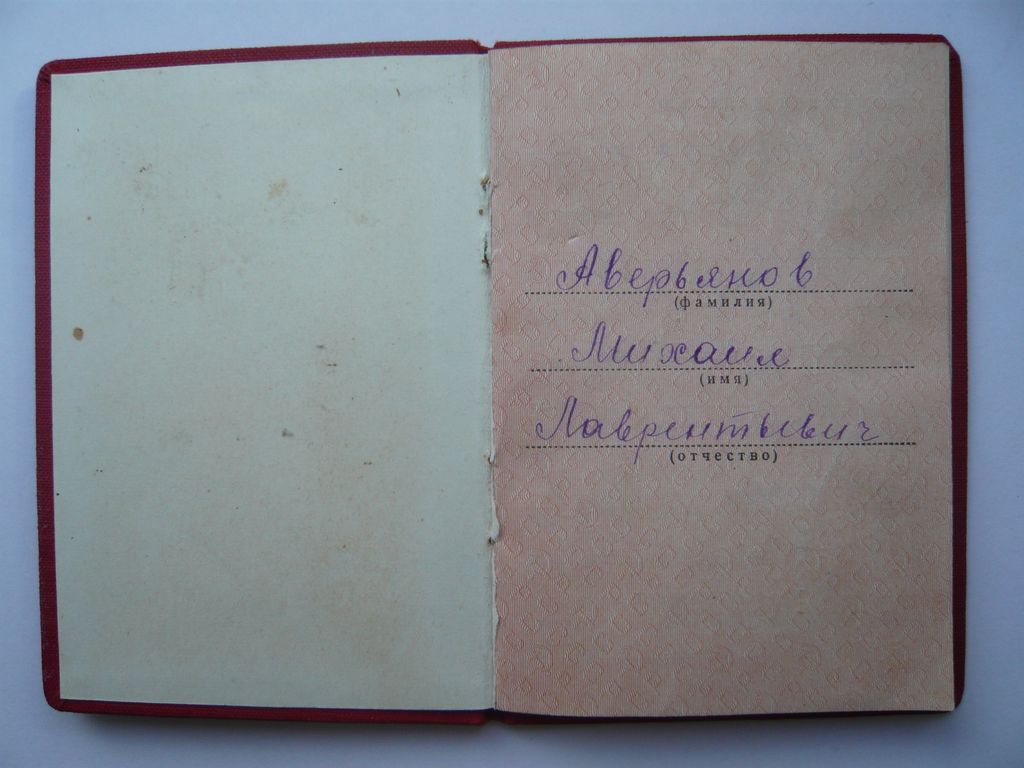 Аверьянов
(фамилия)
Михаил
(имя)
Лаврентьевич
(отчество)